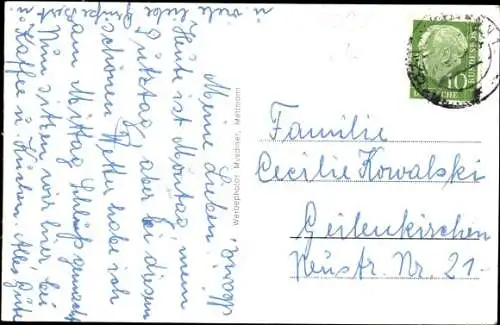 Meine Lieben!
Heute ist Montag, mein
Putztag, aber bei diesem
schönen Wetter habe ich
am Mittag Schluß gemacht
Nun sitzen wir hier bei
Kaffee u. Kuchen. Alles Gute
u. viele liebe
Werbephotos
Mettmann
10
BUNDESPOST
Familie
Cecilie Kowalski
Geilenkirchen
Neustr. Nr. 21-